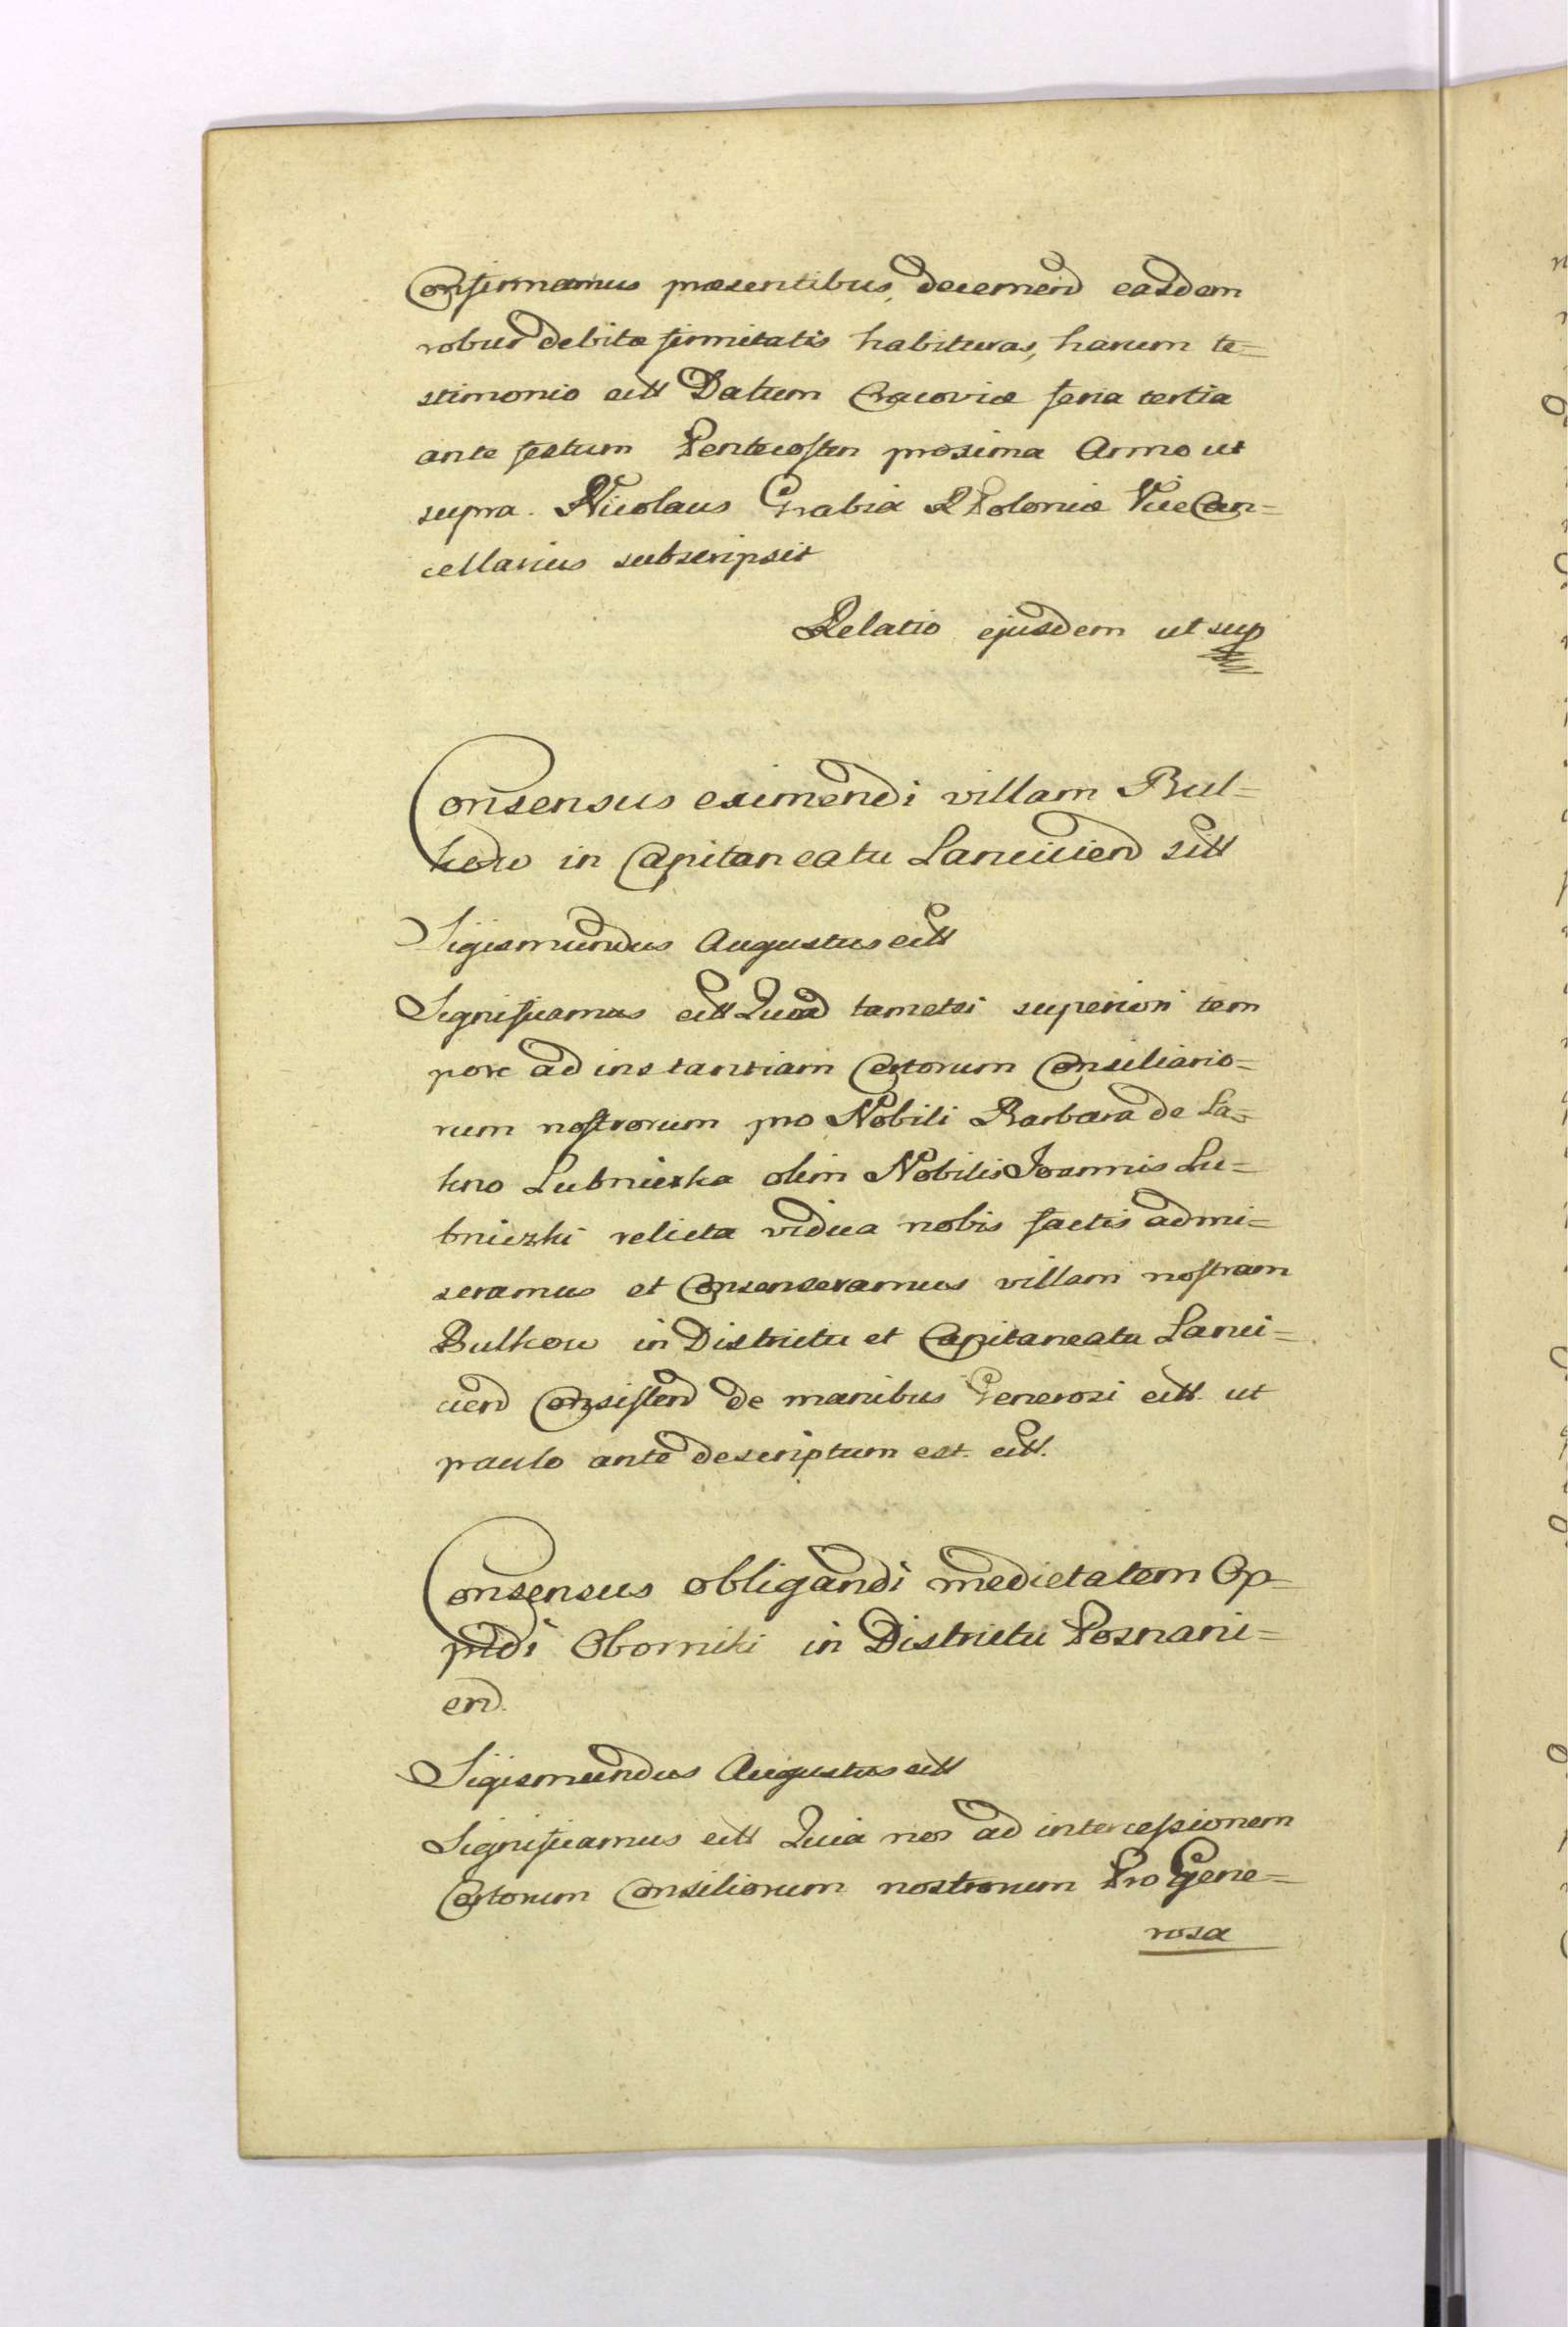 Confirmamus præsentibus, decernend easdem
robur debitæ firmitatis habituras, harum te=
stimonio ett Datum Cracoviæ feria tertia
ante festum Pentecosten proxima Anno ut
supra. Nicolaus Grabia R Poloniæ ViceCan=
cellarius subscripsit
Relatio ejusdem ut sup
Consensus eximendi villam Bul=
kow in Capitaneatu Lanciciend sitt
Sigismundus Augustus ett
Significamus ett Quod tametsi superiori tem
pore ad instantiam Certorum Consiliario=
rum nostrorum pro Nobili Barbara de La=
kno Lubniezka olim Nobilis Joannis Lu=
bniezki relicta vidua nobis factis admi=
seramus et Consenseramus villam nostram
Bulkow in Districtu et Capitaneatu Lanci=
ciend Consistend de manibus Generosi ett. ut
paulo ante descriptum est. ett.
Consensus obligandi medietatem Op=
pidi Oborniki in Districtu Posnani=
end.
Sigismundus Augustus ett
Significamus ett Quia nos ad intercessionem
Certorum Consiliorum nostrorum Pro Gene=
rosa